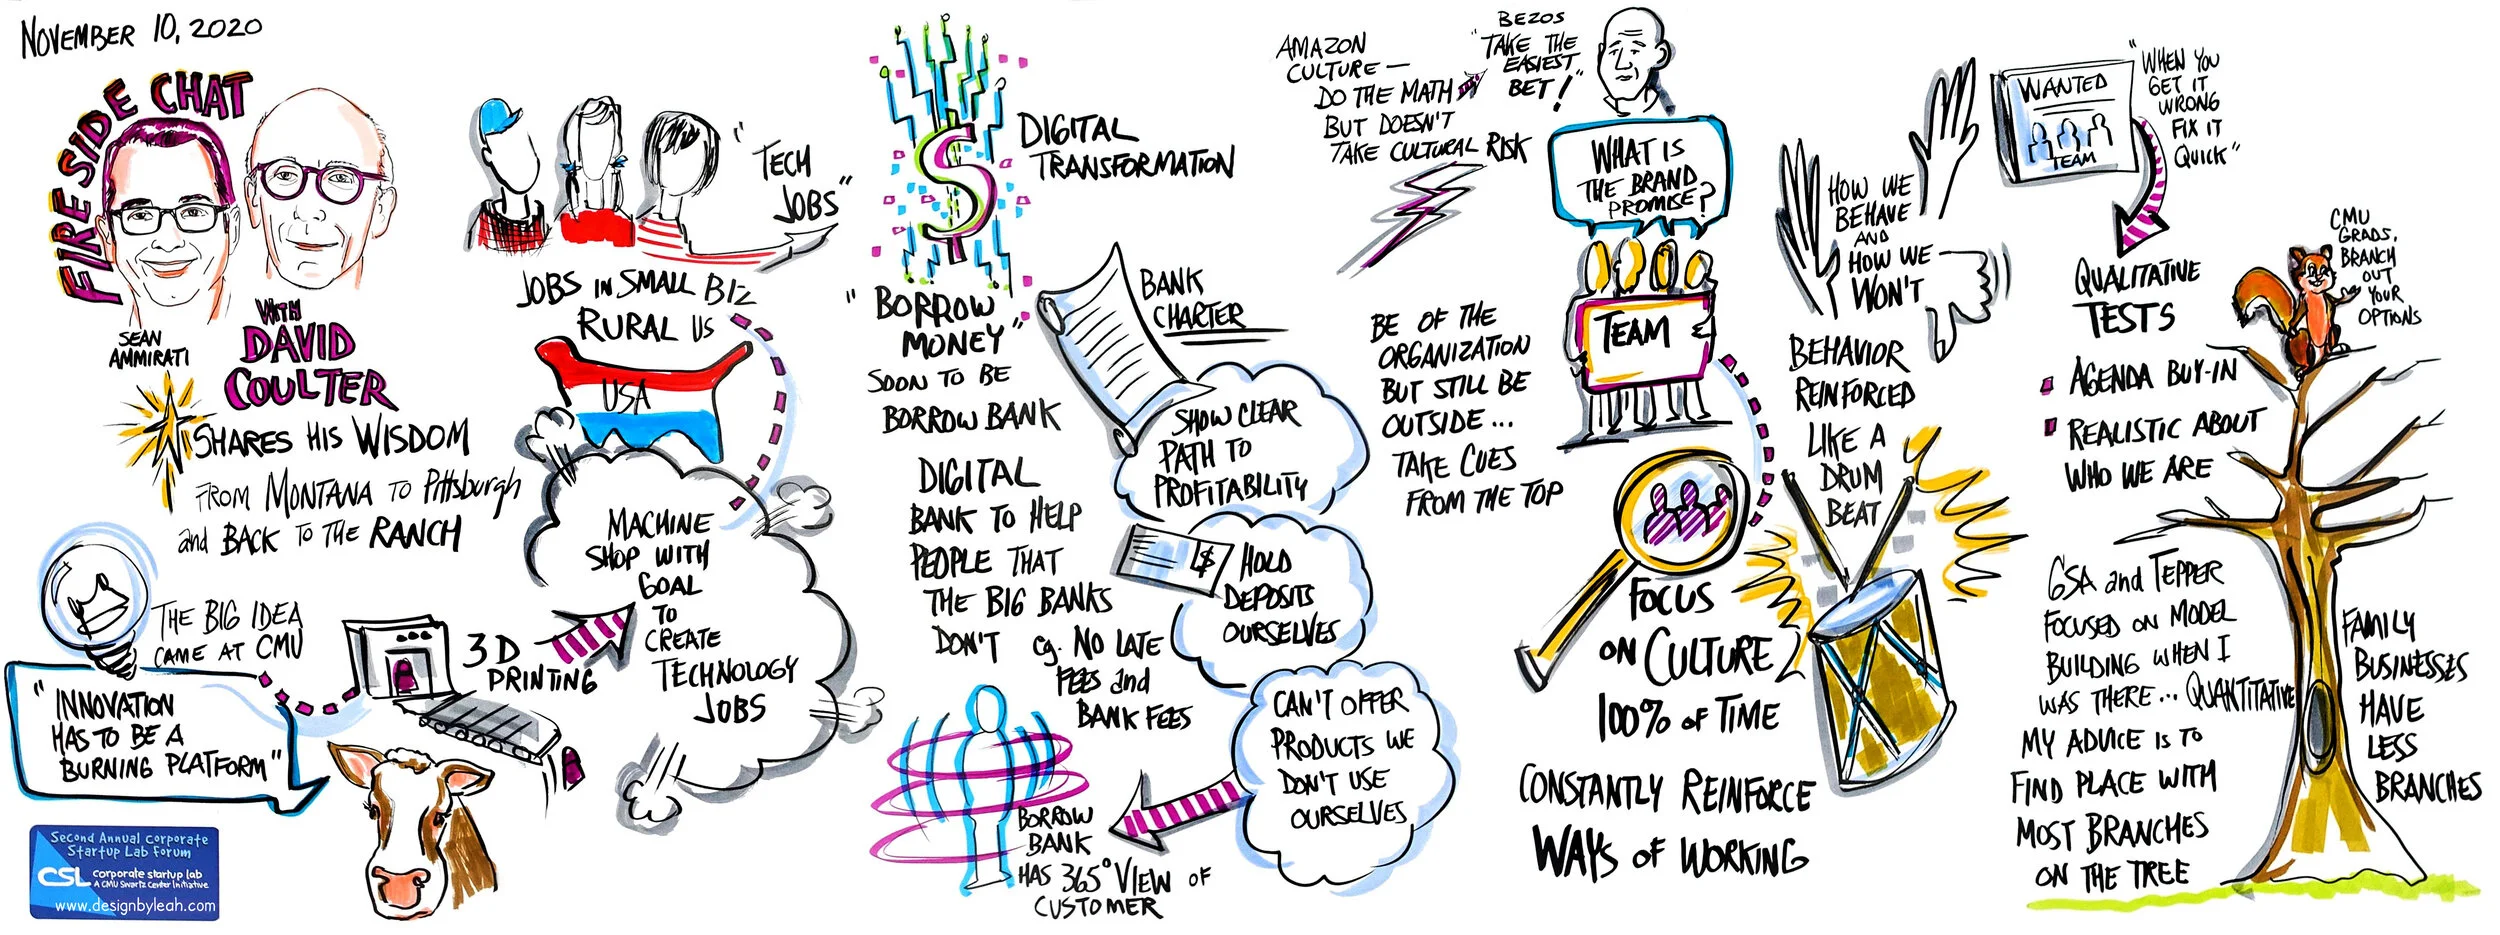 NOVEMBER 10, 2020
FIRESIDE CHAT
SEAN
AMMIRATI
WITH
DAVID
COULTER
SHARES HIS WISDOM
FROM MONTANA TO Pittsburgh
and BACK TO THE RANCH
THE BIG IDEA
CAME AT CMU
"INNOVATION
HAS TO BE A
BURNING PLATFORM"
Second Annual Corporate
Startup Lab Forum
CSL corporate startup lab
A CMU Swartz Center Initiative
www.designbyleah.com
"TECH
JOBS"
JOBS IN SMALL BIZ
RURAL US
USA
3D
PRINTING
MACHINE
SHOP WITH
GOAL
TO
CREATE
TECHNOLOGY
JOBS
$
DIGITAL
TRANSFORMATION
"BORROW
MONEY"
SOON TO BE
BORROW BANK
DIGITAL
BANK TO HELP
PEOPLE THAT
THE BIG BANKS
DON'T eg. NO LATE
FEES and
BANK FEES
BANK
CHARTER
SHOW CLEAR
PATH TO
PROFITABILITY
$
HOLD
DEPOSITS
OURSELVES
CAN'T OFFER
PRODUCTS WE
DON'T USE
OURSELVES
BORROW
BANK
HAS 365° VIEW OF
CUSTOMER
AMAZON
CULTURE —
DO THE MATH
BUT DOESN'T
TAKE CULTURAL RISK
BEZOS
"TAKE THE
EASIEST
BET!"
WHAT IS
THE BRAND
PROMISE?
TEAM
BE OF THE
ORGANIZATION
BUT STILL BE
OUTSIDE...
TAKE CUES
FROM THE TOP
FOCUS
ON CULTURE
100% OF TIME
CONSTANTLY REINFORCE
WAYS OF WORKING
HOW WE
BEHAVE
AND
HOW WE
WON'T
BEHAVIOR
REINFORCED
LIKE A
DRUM
BEAT
WANTED
TEAM
"WHEN YOU
GET IT
WRONG
FIX IT
QUICK"
QUALITATIVE
TESTS
AGENDA BUY-IN
REALISTIC ABOUT
WHO WE ARE
GSA and TEPPER
FOCUSED ON MODEL
BUILDING WHEN I
WAS THERE... QUANTITATIVE
MY ADVICE IS TO
FIND PLACE WITH
MOST BRANCHES
ON THE TREE
CMU
GRADS,
BRANCH
OUT
YOUR
OPTIONS
FAMILY
BUSINESSES
HAVE
LESS
BRANCHES